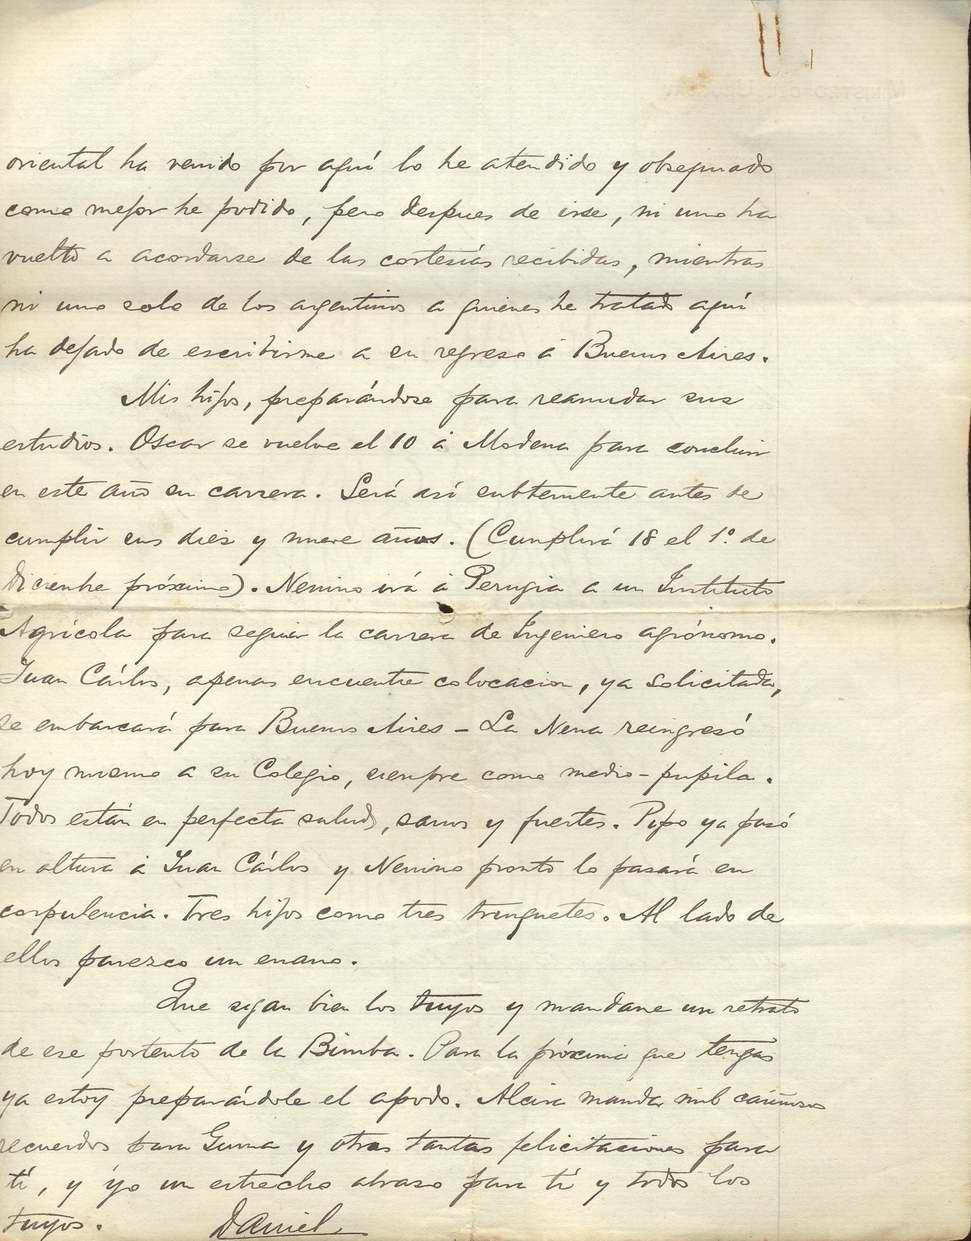 oriental ha venido por aquí lo he atendido y obsequiado
como mejor he podido, pero despues de irse, ni uno ha
vuelto a acordarse de las cortesías recibidas, mientras
ni uno solo de los argentinos a quienes he tratado aquí
ha dejado de escribirme a su regreso á Buenos Aires.
Mis hijos, preparándose para reanudar sus
estudios. Oscar se vuelve el 10 á Modena para concluir
en este año su carrera. Será así subteniente antes de
cumplir sus diez y nueve años. (Cumplirá 18 el 1º de
Diciembre próximo). Nenino irá á Perugia a un Instituto
Agrícola para seguir la carrera de Ingeniero agrónomo.
Juan Cárlos, apenas encuentre colocacion, ya solicitada,
se embarcará para Buenos Aires - La Nena reingresó
hoy mismo a su Colegio, siempre como medio-pupila.
Todos están en perfecta salud, sanos y fuertes. Pipo ya pasó
en altura á Juan Cárlos y Nenino pronto lo pasará en
corpulencia. Tres hijos como tres trinquetes. Al lado de
ellos parezco un enano.
Que sigan bien los tuyos y mandame un retrato
de ese portento de la Bimba. Para la próxima que tengas
ya estoy preparándole el apodo. Alcira manda mil cariñosos
recuerdos para Guma y otras tantas felicitaciones para
tí, y yo un estrecho abrazo para tí y todos los
tuyos. Daniel